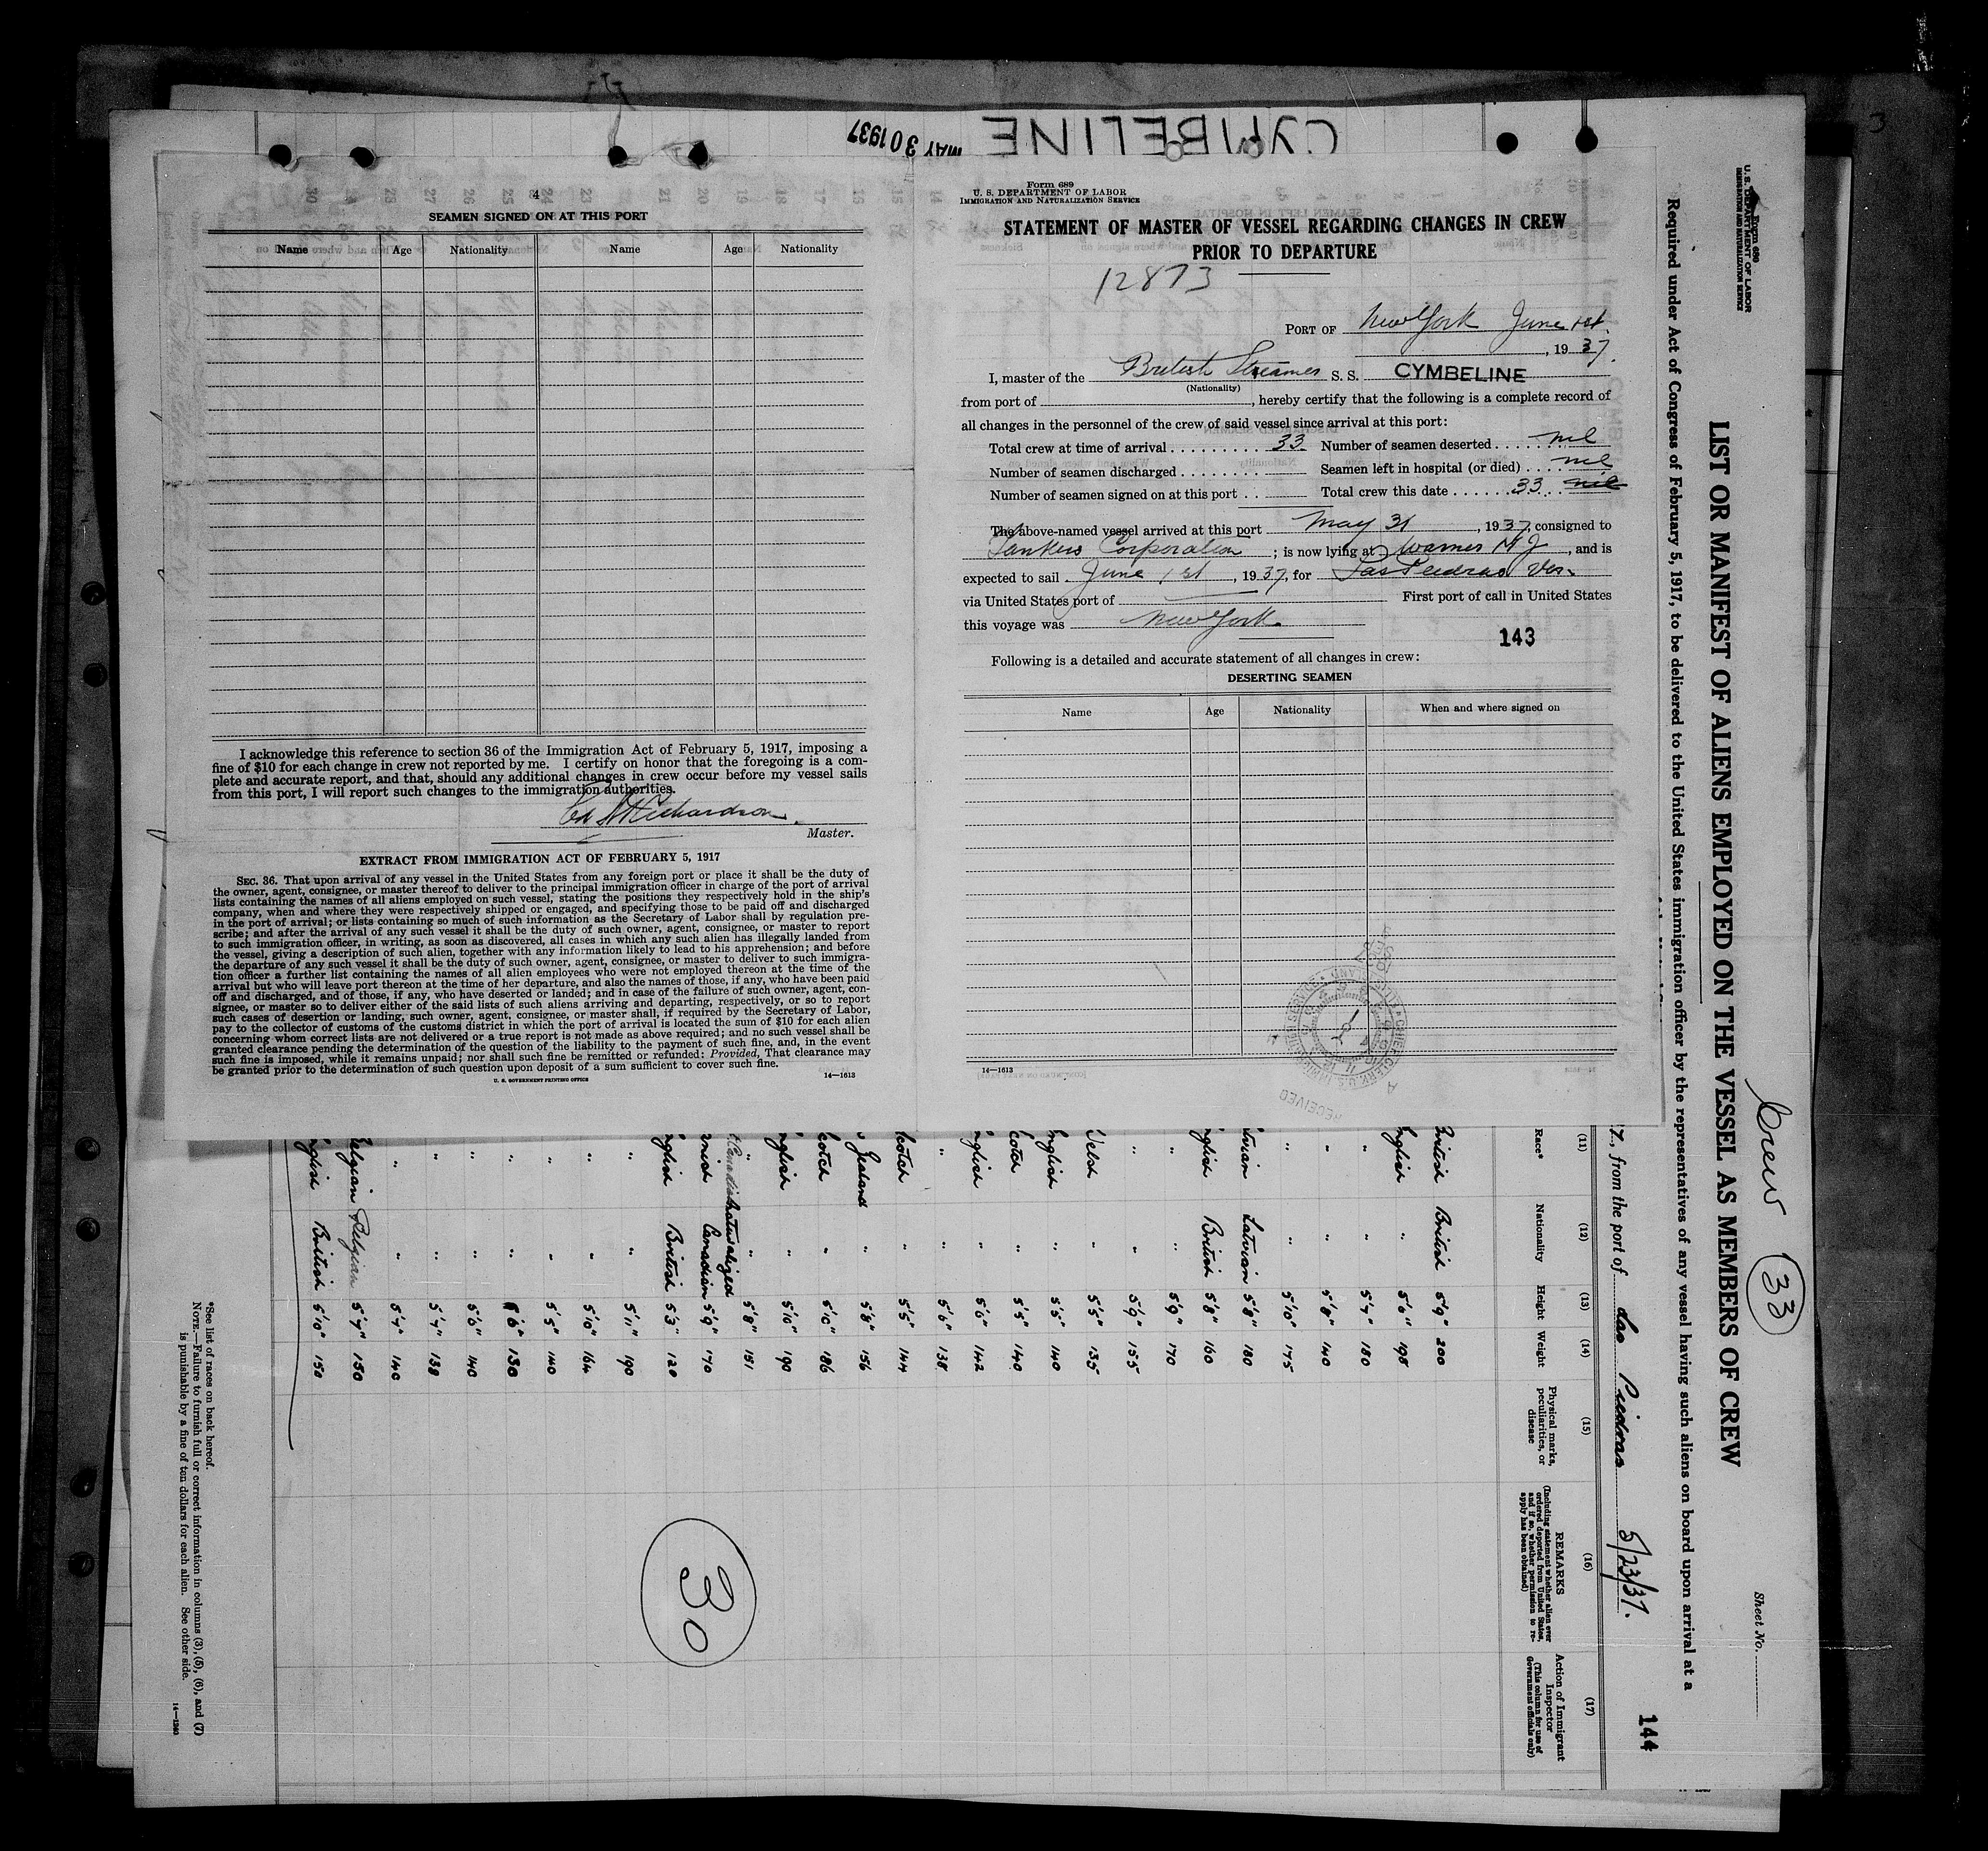 CYMBELINE
MAY 30 1937
4
SEAMEN SIGNED ON AT THIS PORT
Name Age Nationality Name Age Nationality
I acknowledge this reference to section 36 of the Immigration Act of February 5, 1917, imposing a
fine of $10 for each change in crew not reported by me. I certify on honor that the foregoing is a com-
plete and accurate report, and that, should any additional changes in crew occur before my vessel sails
from this port, I will report such changes to the immigration authorities.
Richardson
Master.
EXTRACT FROM IMMIGRATION ACT OF FEBRUARY 5, 1917
SEC. 36. That upon arrival of any vessel in the United States from any foreign port or place it shall be the duty of
the owner, agent, consignee, or master thereof to deliver to the principal immigration officer in charge of the port of arrival
lists containing the names of all aliens employed on such vessel, stating the positions they respectively hold in the ship's
company, when and where they were respectively shipped or engaged, and specifying those to be paid off and discharged
in the port of arrival; or lists containing so much of such information as the Secretary of Labor shall by regulation pre-
scribe; and after the arrival of any such vessel it shall be the duty of such owner, agent, consignee, or master to report
to such immigration officer, in writing, as soon as discovered, all cases in which any such alien has illegally landed from
the vessel, giving a description of such alien, together with any information likely to lead to his apprehension; and before
the departure of any such vessel it shall be the duty of such owner, agent, consignee, or master to deliver to such immigra-
tion officer a further list containing the names of all alien employees who were not employed thereon at the time of the
arrival but who will leave port thereon at the time of her departure, and also the names of those, if any, who have been paid
off and discharged, and of those, if any, who have deserted or landed; and in case of the failure of such owner, agent, con-
signee, or master so to deliver either of the said lists of such aliens arriving and departing, respectively, or so to report
such cases of desertion or landing, such owner, agent, consignee, or master shall, if required by the Secretary of Labor,
pay to the collector of customs of the customs district in which the port of arrival is located the sum of $10 for each alien
concerning whom correct lists are not delivered or a true report is not made as above required; and no such vessel shall be
granted clearance pending the determination of the question of the liability to the payment of such fine, and, in the event
such fine is imposed, while it remains unpaid; nor shall such fine be remitted or refunded: Provided, That clearance may
be granted prior to the determination of such question upon deposit of a sum sufficient to cover such fine.
U. S. GOVERNMENT PRINTING OFFICE 14—1613
Form 689
U. S. DEPARTMENT OF LABOR
IMMIGRATION AND NATURALIZATION SERVICE
STATEMENT OF MASTER OF VESSEL REGARDING CHANGES IN CREW
PRIOR TO DEPARTURE
12873
PORT OF New York June 1st.
, 1937.
I, master of the British Steamer S. S. CYMBELINE
(Nationality)
from port of , hereby certify that the following is a complete record of
all changes in the personnel of the crew of said vessel since arrival at this port:
Total crew at time of arrival 33 Number of seamen deserted nil
Number of seamen discharged Seamen left in hospital (or died) nil
Number of seamen signed on at this port Total crew this date 33 nil
The above-named vessel arrived at this port May 31, 1937, consigned to
Tankers Corporation ; is now lying at Warners N J, and is
expected to sail June 1st, 1937, for Las Piedras Ven.
via United States port of First port of call in United States
this voyage was New York.
143
Following is a detailed and accurate statement of all changes in crew:
DESERTING SEAMEN
Name Age Nationality When and where signed on
RECEIVED
14—1613
Form 689
U. S. DEPARTMENT OF LABOR
IMMIGRATION AND NATURALIZATION SERVICE
Sheet No.
Crew 33
LIST OR MANIFEST OF ALIENS EMPLOYED ON THE VESSEL AS MEMBERS OF CREW
Required under Act of Congress of February 5, 1917, to be delivered to the United States immigration officer by the representatives of any vessel having such aliens on board upon arrival at a
144
7., from the port of Las Piedras 5/23/37.
(11) (12) (13) (14) (15) (16) (17)
Race* Nationality Height Weight Physical marks, peculiarities, or disease REMARKS (Including statement whether alien ever ordered deported from United States, and if so, whether permission to re-apply has been obtained) Action of Immigrant Inspector (This column for use of Government officials only)
British British 5'9" 200
nglish " 5'6" 198
" " 5'7" 180
" " 5'8" 140
" " 5'10" 175
tvian Latvian 5'8" 180
nglish British 5'8" 160
" " 5'9" 170
" " 5'9" 155
Welsh " 5'5" 135
nglish " 5'5" 140
cotch " 5'5" 140
nglish " 5'6" 142
" " 5'6" 138
cotch " 5'5" 144
Zealand " 5'8" 156
cotch " 5'10" 186
nglish " 5'10" 190
" " 5'8" 151
naturalized
nnish Canadian 5'9" 170
nglish British 5'3" 120
" " 5'11" 190
" " 5'10" 164
" " 5'5" 140
" " 5'6" 130
" " 5'6" 140
" " 5'7" 138
" " 5'7" 140
elgian Belgian 5'7" 150
nglish British 5'10" 150
30
*See list of races on back hereof.
NOTE.—Failure to furnish full or correct information in columns (3), (5), (6), and (7)
is punishable by a fine of ten dollars for each alien. See other side.
14—1240